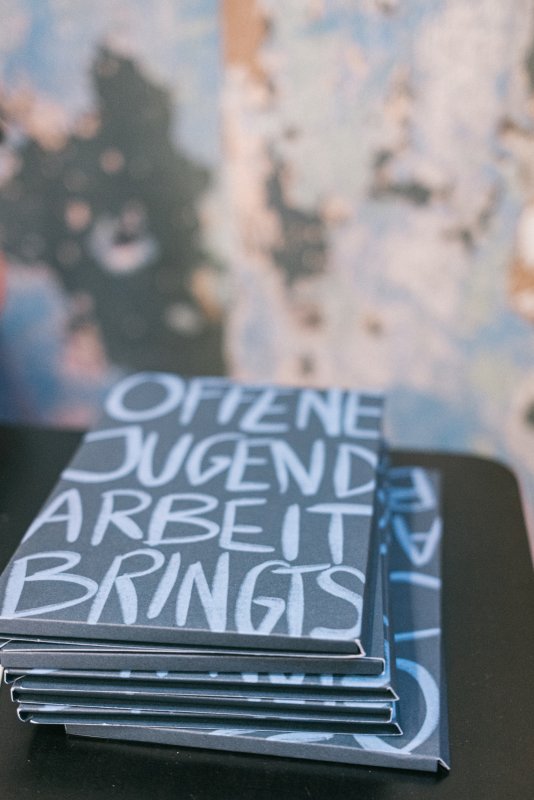 OFFENE
JUGEND
ARBEIT
BRINGTS